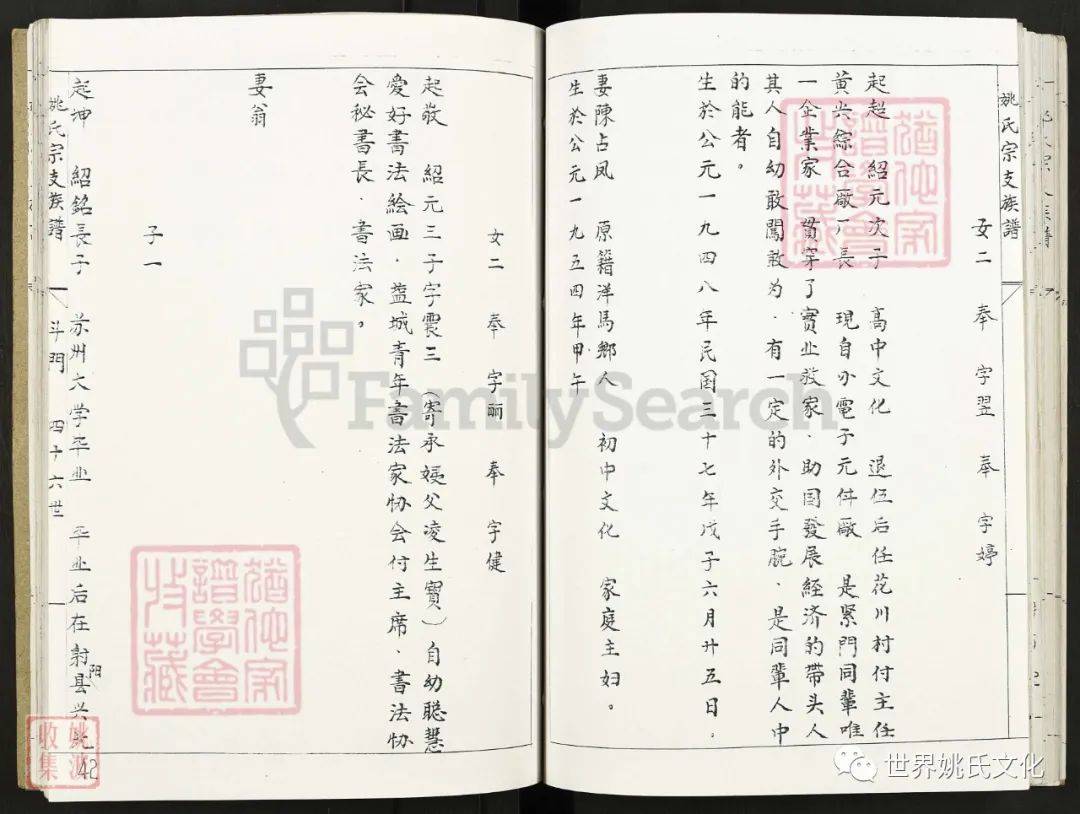 姚氏宗支族譜
女二 奉字翌 奉字婷
起超 紹元次子 高中文化 退伍后任花川村付主任
黄尖綜合廠厂長 現自办電子元件廠 是緊門同輩唯
一企業家 貫穿了實业救家．助国發展經济的带头人
其人自幼敢闖敢为．有一定的外交手腕．是同輩人中
的能者。
生於公元一九四八年民国三十七年戊子六月廿五日．
妻陳占凤 原籍洋馬鄉人 初中文化 家庭主妇。
生於公元一九五四年甲午
女二 奉字丽 奉字健
起敬 紹元三子字震三（寄承姨父凌生寶）自幼聪慧
爱好書法绘画．盐城青年書法家协会付主席．書法协
会秘書長．書法家。
妻翁
子一
起坤 紹銘長子 苏州大学毕业 毕业后在射阳县兴
姚氏宗支族譜 斗門 四十六世
42
猶他家譜學會收藏
猶他家譜學會收藏
姚 收集
FamilySearch
世界姚氏文化